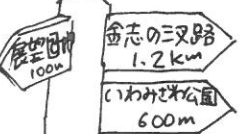 展望園地
100m
金志の三叉路
1.2km
いわみざわ公園
600m